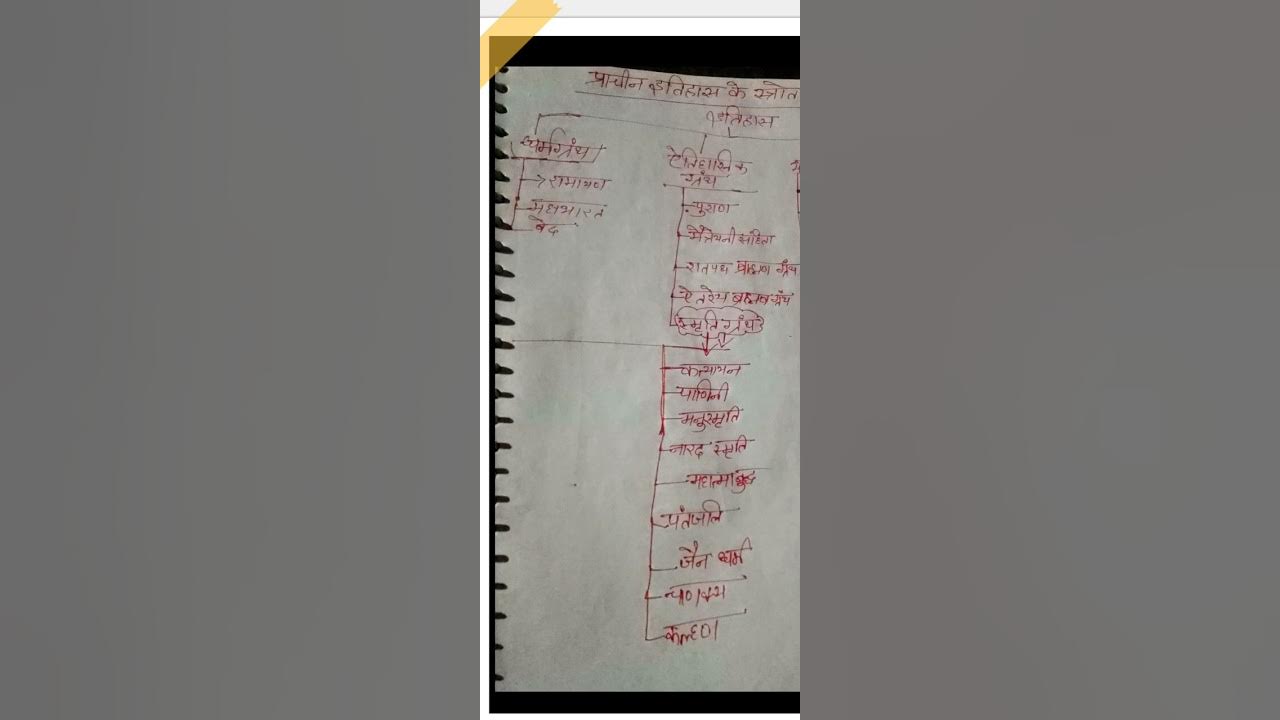 प्राचीन इतिहास के स्त्रोत
इतिहास
धर्मग्रंथ
रामायण
महाभारत
वेद
ऐतिहासिक
ग्रंथ
पुराण
मैत्रेयनी संहिता
शतपथ ब्राह्मण ग्रंथ
ऐतरेय ब्राह्मण ग्रंथ
स्मृति ग्रंथ
कत्यायन
पाणिनी
मनुस्मृति
नारद स्मृति
महात्मा बुद्ध
पंतजलि
जैन धर्म
चाणक्य
कल्हण